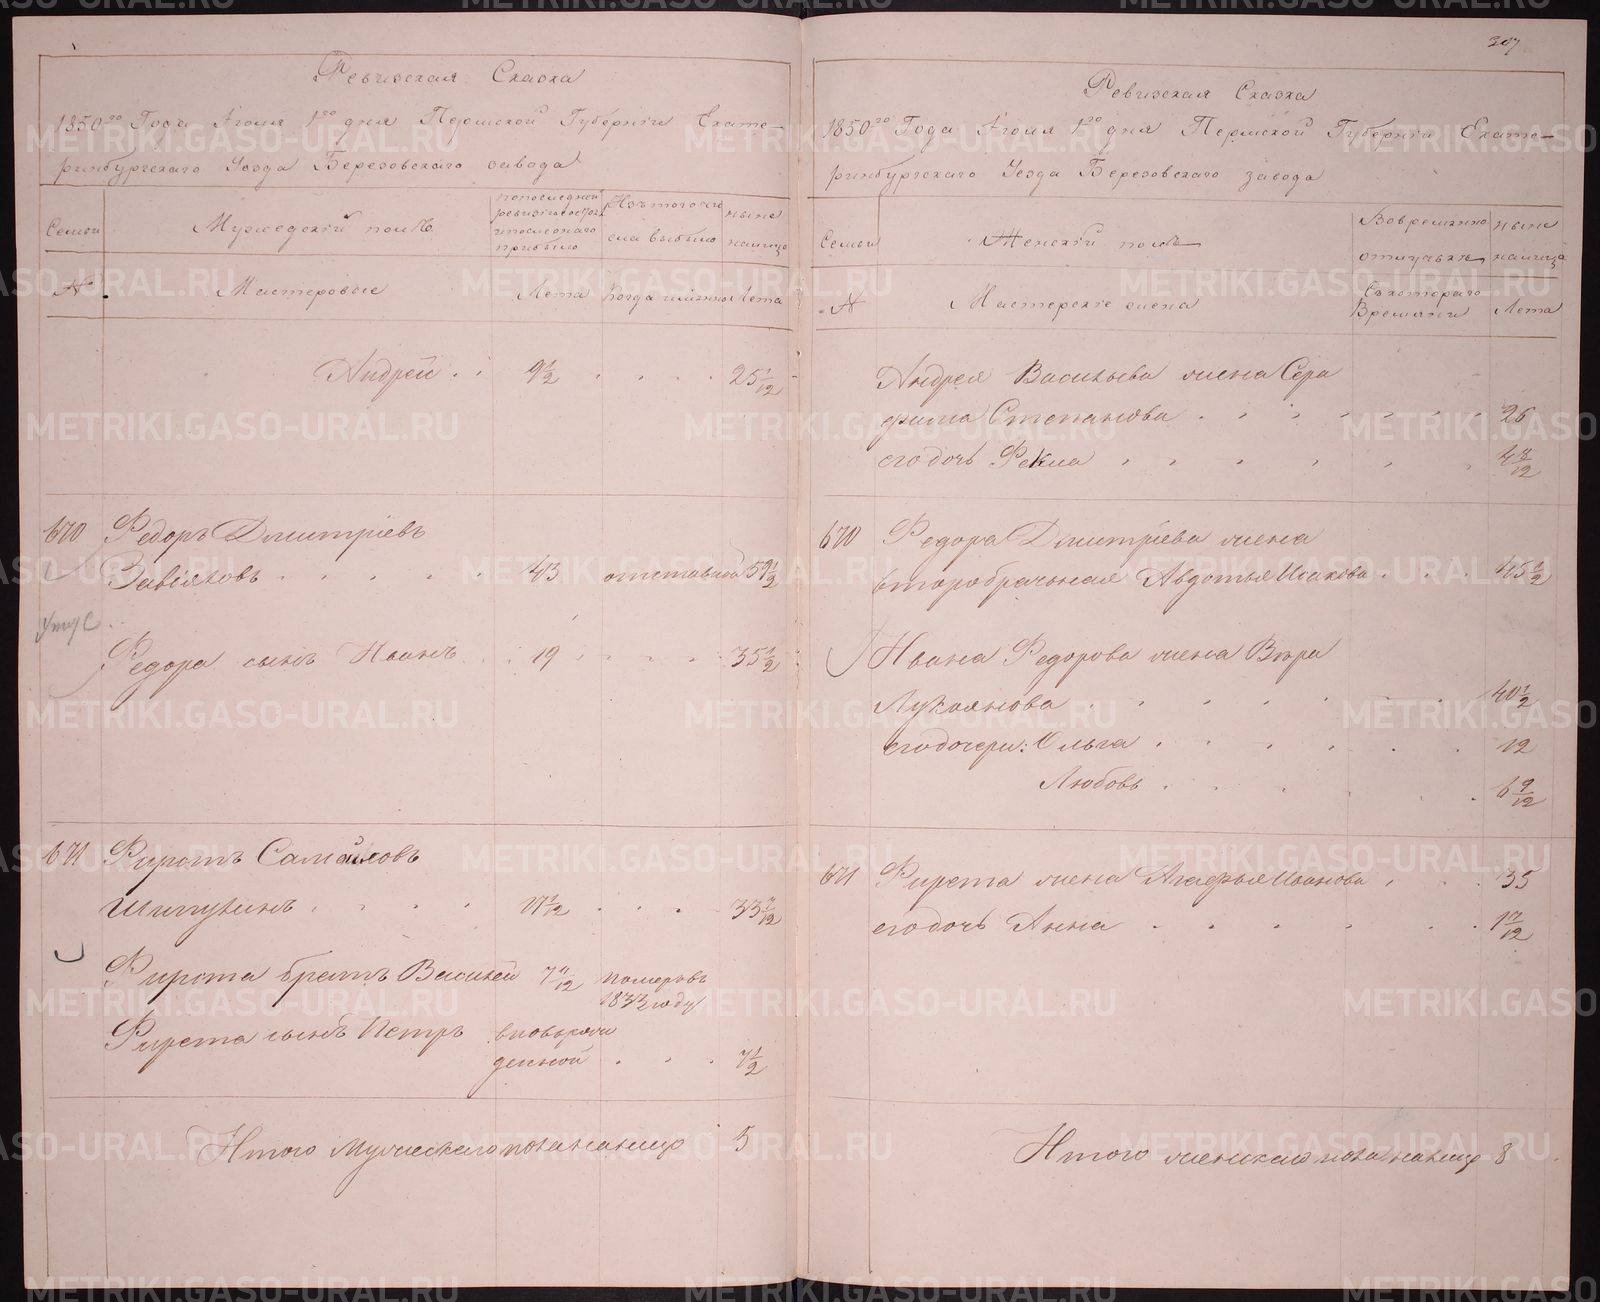 Ревизская Сказка
1850го Года Июля 1го дня Пермской Губернiи Екате-
ринбургскаго Уезда Березовскаго завода
Семьи
Мужескiй полъ
Изъ того числа выбыло
ныне налицо
№
Мастеровые
Лета
Когда именно
Лета
Андрей . . 9 1/2 . . . . 25 1/12
670 Федоръ Дмитрiевъ
Завiяловъ . . . . . 43 отставной 59 1/2
Федора сынъ Иванъ . . 19 . . . . 35 1/2
671 Фирстъ Самойловъ
Шипулинъ . . . . 17 1/12 . . . 33 7/12
Фирста братъ Василей 7 11/12 померъ въ
1833 году
Фирста сынъ Петръ вновьрож
денной . . . 7 1/2
Итого мужескаго пола налицо 5
307
Ревизская Сказка
1850го Года Июля 1го дня Пермской Губернiи Екате-
ринбургскаго Уезда Березовскаго завода
Семьи
Женскiй полъ
Вовремянно отлучьке
ныне налицо
№
Мастерскiе жена
Съкотораго Времяни
Лета
Андрея Васильева жена Сера
фима Степанова . . . . . . . 26
его дочь Фекла . . . . . . 4 8/12
670 Федора Дмитрiева жена
второбрачьная Авдотья Исакова . . . 45 1/2
Ивана Федорова жена Вера
Лукоянова . . . . . . . 40 1/2
его дочери: Ольга . . . . . . 12
Любовь . . . . . . 6 9/12
671 Фирста жена Агафья Иванова . . . 35
его дочь Анна . . . . . . 1 7/12
Итого женскаго пола налицо 8
METRIKI.GASO-URAL.RU